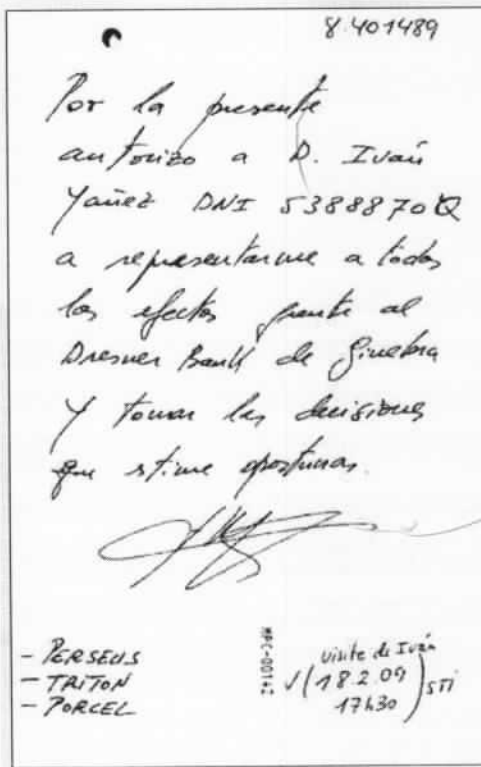 8.401489
Por la presente
autorizo a D. Iván
Yañez DNI 5388870Q
a representarme a todos
los efectos frente al
Dresner Bank de Ginebra
y tomar las decisiones
que stime oportunas.
- PERSEUS
- TRITON
- PORCEL
MPC-00142
visite de Iván
√(18.2.09) STI
17h30